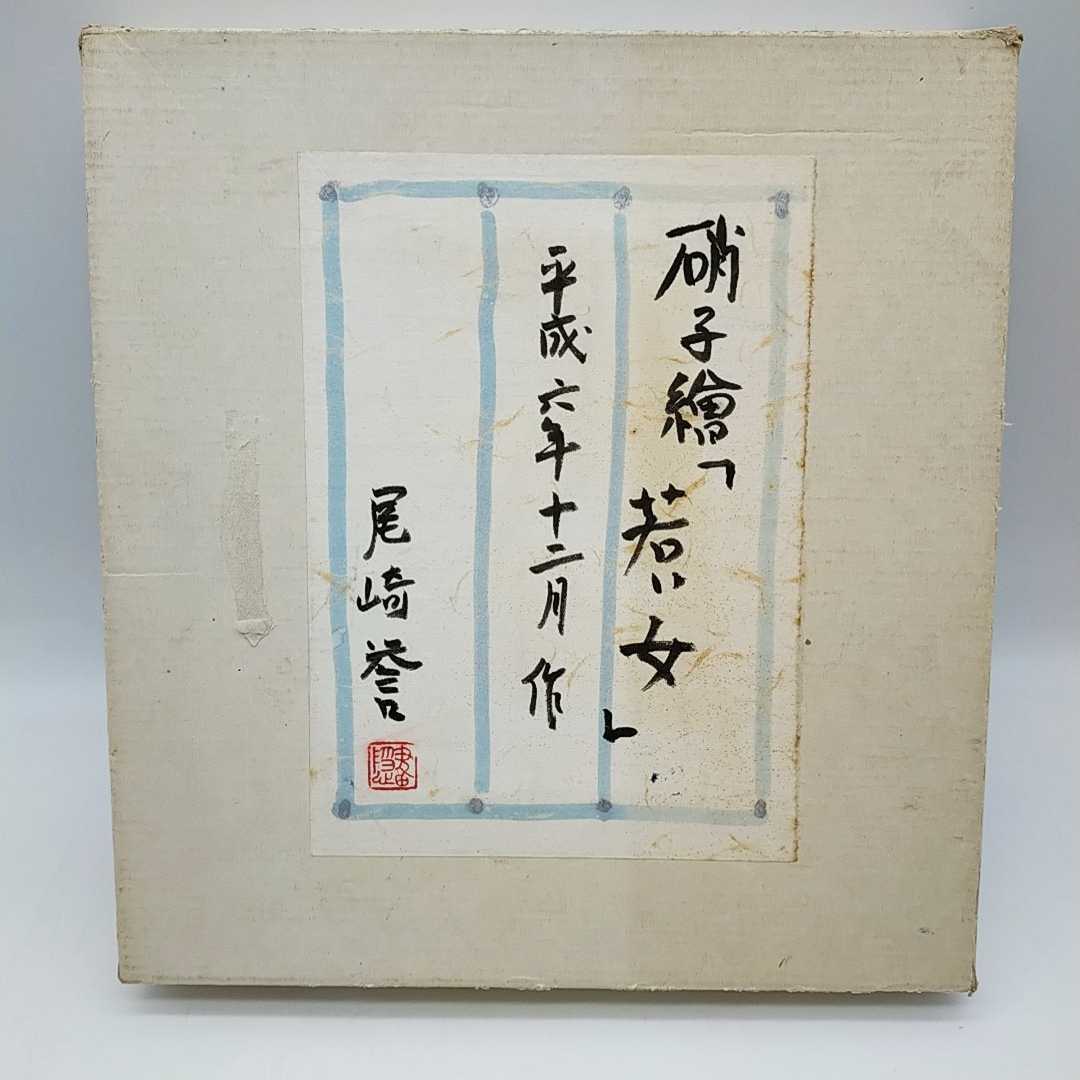 硝子繪「若い女」
平成六年十二月作
尾崎誉